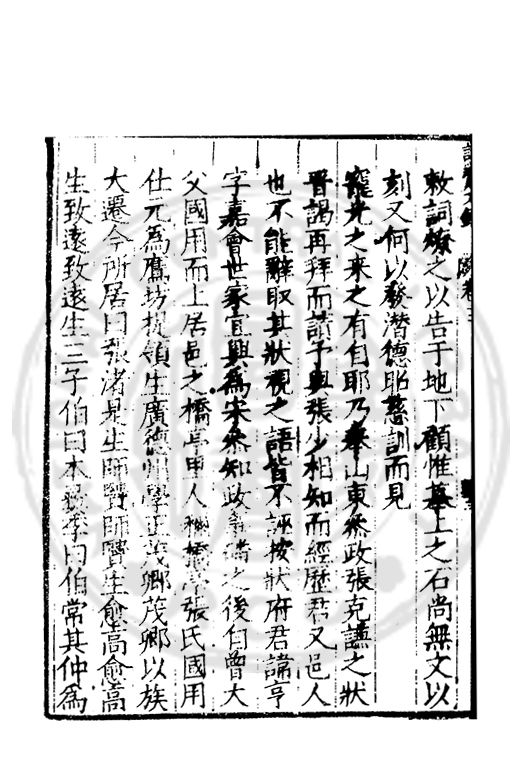 敕詞燎之以告于地下顧惟墓上之石尚無文以
刻又何以發潛德昭慈訓而見
寵光之来之有自耶乃奉山東叅政張克謙之狀
晋謁再拜而請予與張少相知而經歷君又邑人
也不能辭取其狀視之語皆不誣按狀府君諱亨
字嘉會世家宜興為宋叅知政事 之後自曾大
父國用而上居邑之橋亭里人稱橋亭張氏國用
仕元為鷹坊提領生廣德州學正茂卿茂卿以族
大遷今所居曰張渚是生師賢師賢生愈高愈高
生致遠致遠生三子伯曰本 季曰伯常其仲為